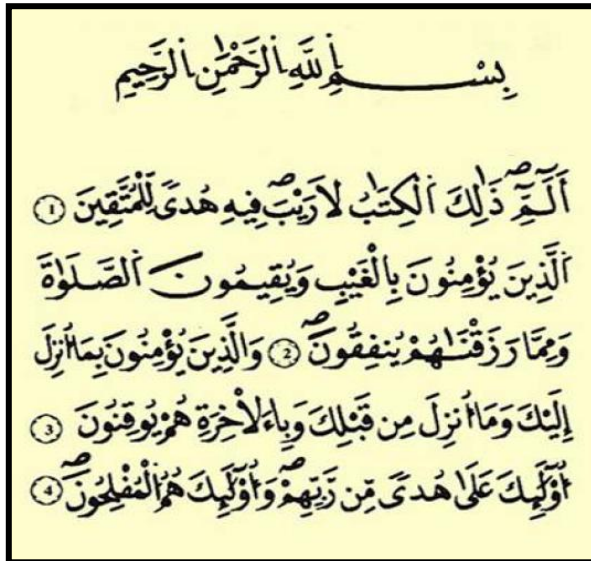 بِسْمِ اللَّهِ الرَّحْمَٰنِ الرَّحِيمِ
أَلَٓمِّٓۖ ذَٰلِكَ اَلْكِتَٰبُ لَا رَيْبَۖ فِيهِ هُدىً لِّلْمُتَّقِينَ 1
اَلَّذِينَ يُؤْمِنُونَ بِالْغَيْبِ وَيُقِيمُونَ اَلصَّلَوٰةَ
وَمِمَّا رَزَقْنَٰهُمْ يُنفِقُونَۖ 2 وَالَّذِينَ يُؤْمِنُونَ بِمَا أُنزِلَ
إِلَيْكَ وَمَا أُنزِلَ مِن قَبْلِكَ وَبِالَاخِرَةِ هُمْ يُوقِنُونَ 3
أُوْلَٰٓئِكَ عَلَىٰ هُدىً مِّن رَّبِّهِمْۖ وَأُوْلَٰٓئِكَ هُمُ اُلْمُفْلِحُونَۖ 4